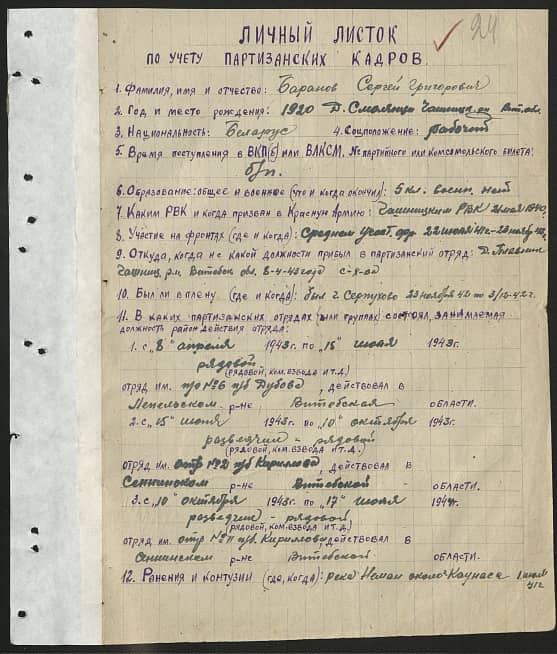 24
ЛИЧНЫЙ ЛИСТОК
ПО УЧЕТУ ПАРТИЗАНСКИХ КАДРОВ.
1. Фамилия, имя и отчество: Баранов Сергей Григорович
2. Год и место рождения: 1920 Д. Смолянцы Чашницк. рн Вит. обл.
3. Национальность: Беларус 4. Соцположение: рабочий
5. Время поступления в ВКП(б) или ВЛКСМ, № партийного или комсомольского билета:
б/п.
6. Образование: общее и военное (что и когда окончил): 5 кл. военн. нет
7. Каким РВК и когда призван в Красную Армию: Чашницким РВК 21 мая 1940г.
8. Участие на фронтах (где и когда): Среднем участ. фр. 22 июня 41г-
9. Откуда, когда и с какой должности прибыл в партизанский отряд:
Чашниц. р-н Витебск обл. 8-4-43 года
10. Был ли в плену (где и когда): был г. Серпухово 23 ноября 42 по 3/12-42г.
11. В каких партизанских отрядах (или группах) состоял, занимаемая
должность район действия отряда:
1. с "8" апреля 1943г. по "15" июня 1943г.
рядовой.
(рядовой, ком. взвода и т.д.)
отряд им. п/о №6 п/б Дубова, действовал в
Лепельском р-не, Витебская области.
2. с "15" июня 1943г. по "10" октября 1943г.
разведчик - рядовой
(рядовой, ком. взвода и т.д.)
отряд им. отр №2 п/б Кириллова, действовал в
Сеннинском р-не Витебской - области.
3. с "10" октября 1943г. по "17" июня 1944г.
разведчик - рядовой
(рядовой, ком. взвода и т.д.)
отряд им. отр №11 п/б. Кириллова действовал в
Сеннинском р-не Витебской области.
12. Ранения и контузии (где, когда): река Неман около Каунаса 1 июля
41г